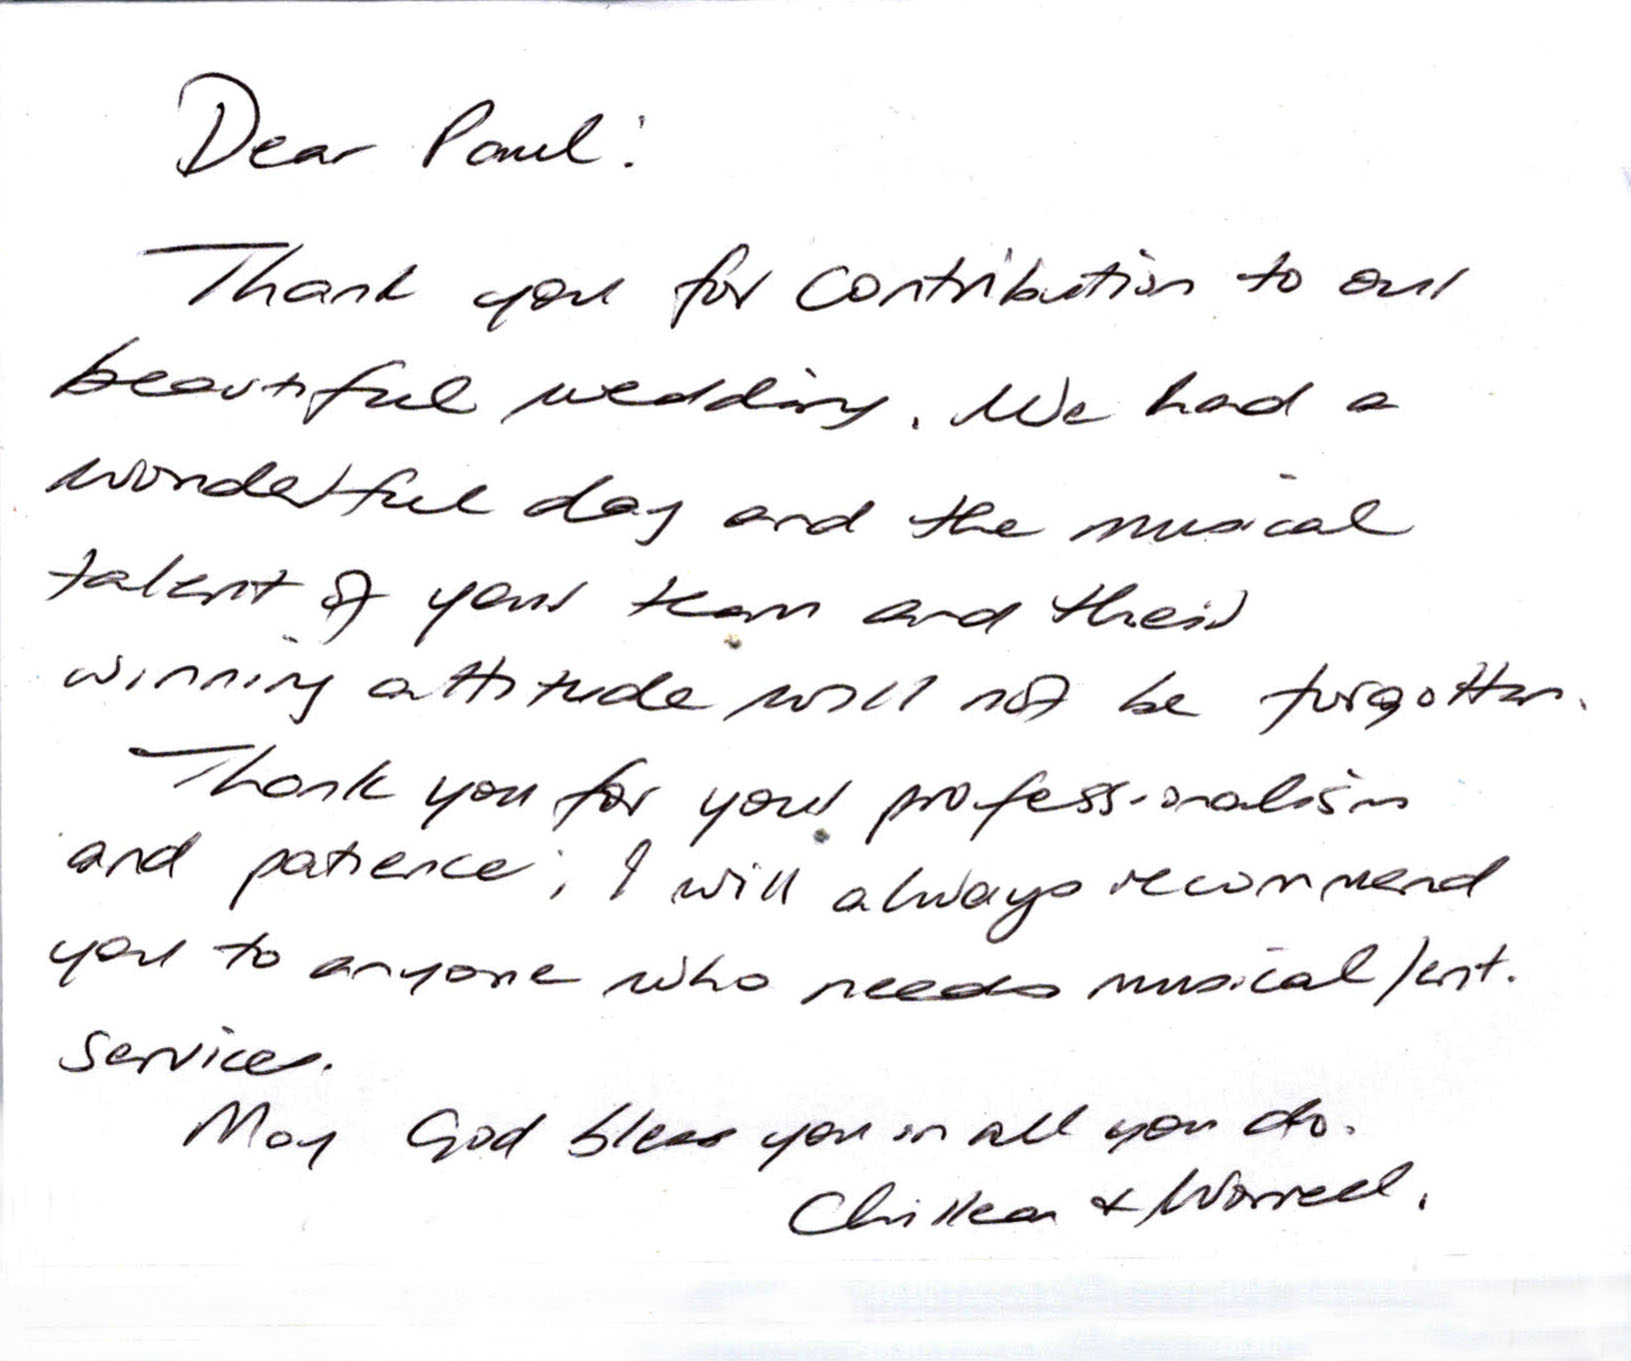 Dear Paul:
Thank you for contribution to our
beautiful wedding. We had a
wonderful day and the musical
talent of your team and their
winning attitude will not be forgotten.
Thank you for your professionalism
and patience; I will always recommend
you to anyone who needs musical/ent.
services.
May God bless you in all you do.
& Worrell.